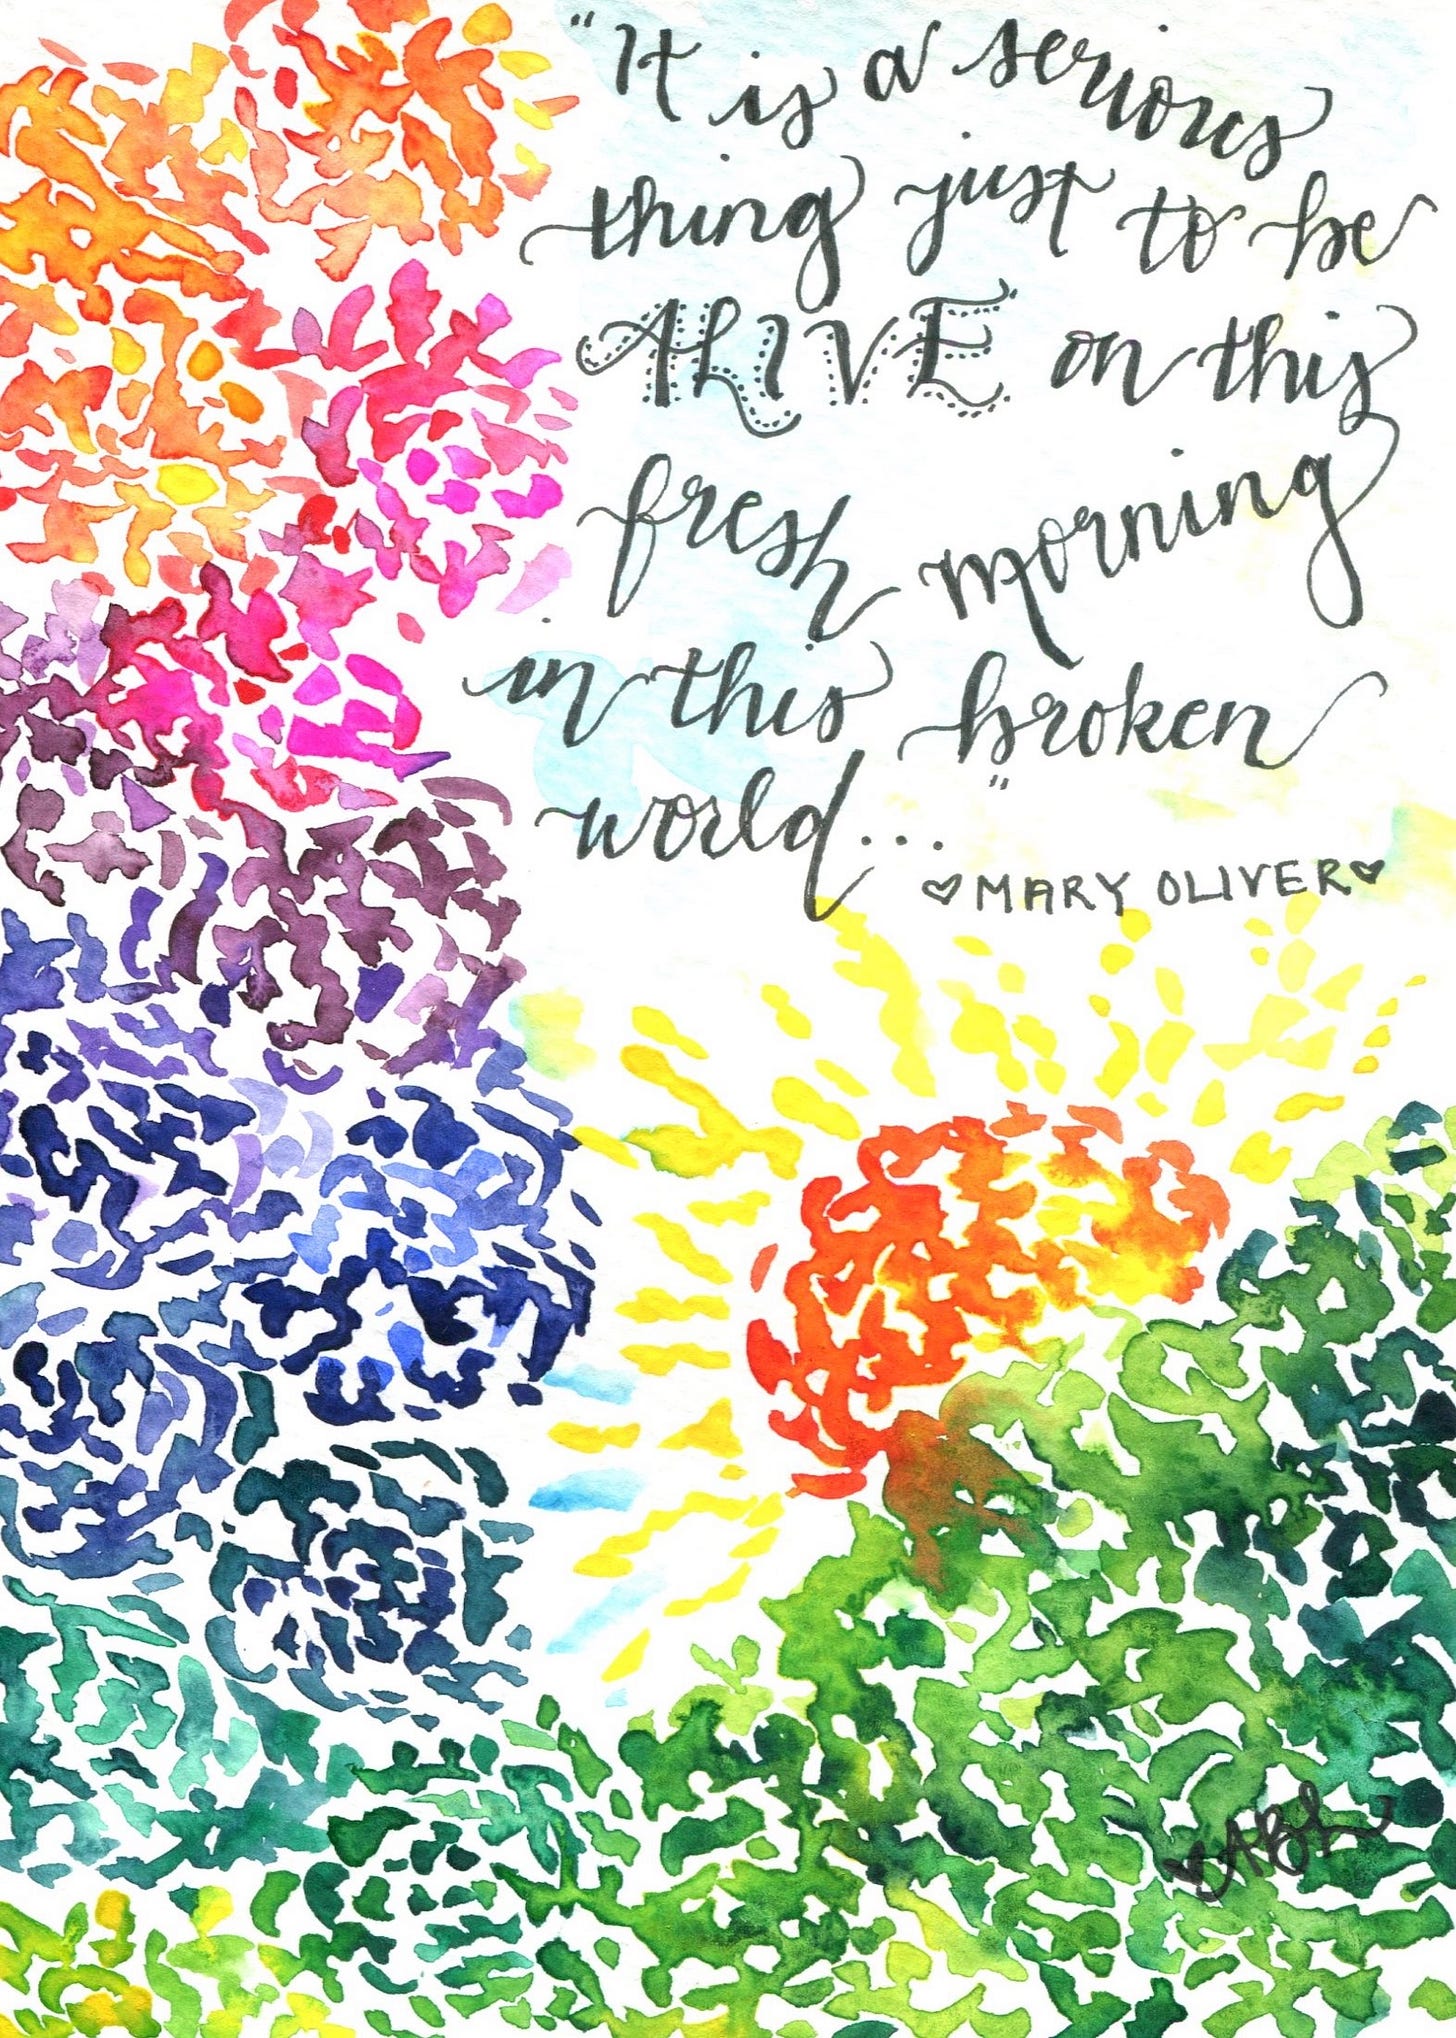 "It is a serious
thing just to be
ALIVE on this
fresh morning
in this broken
world..."
♡MARY OLIVER♡
♡ABL